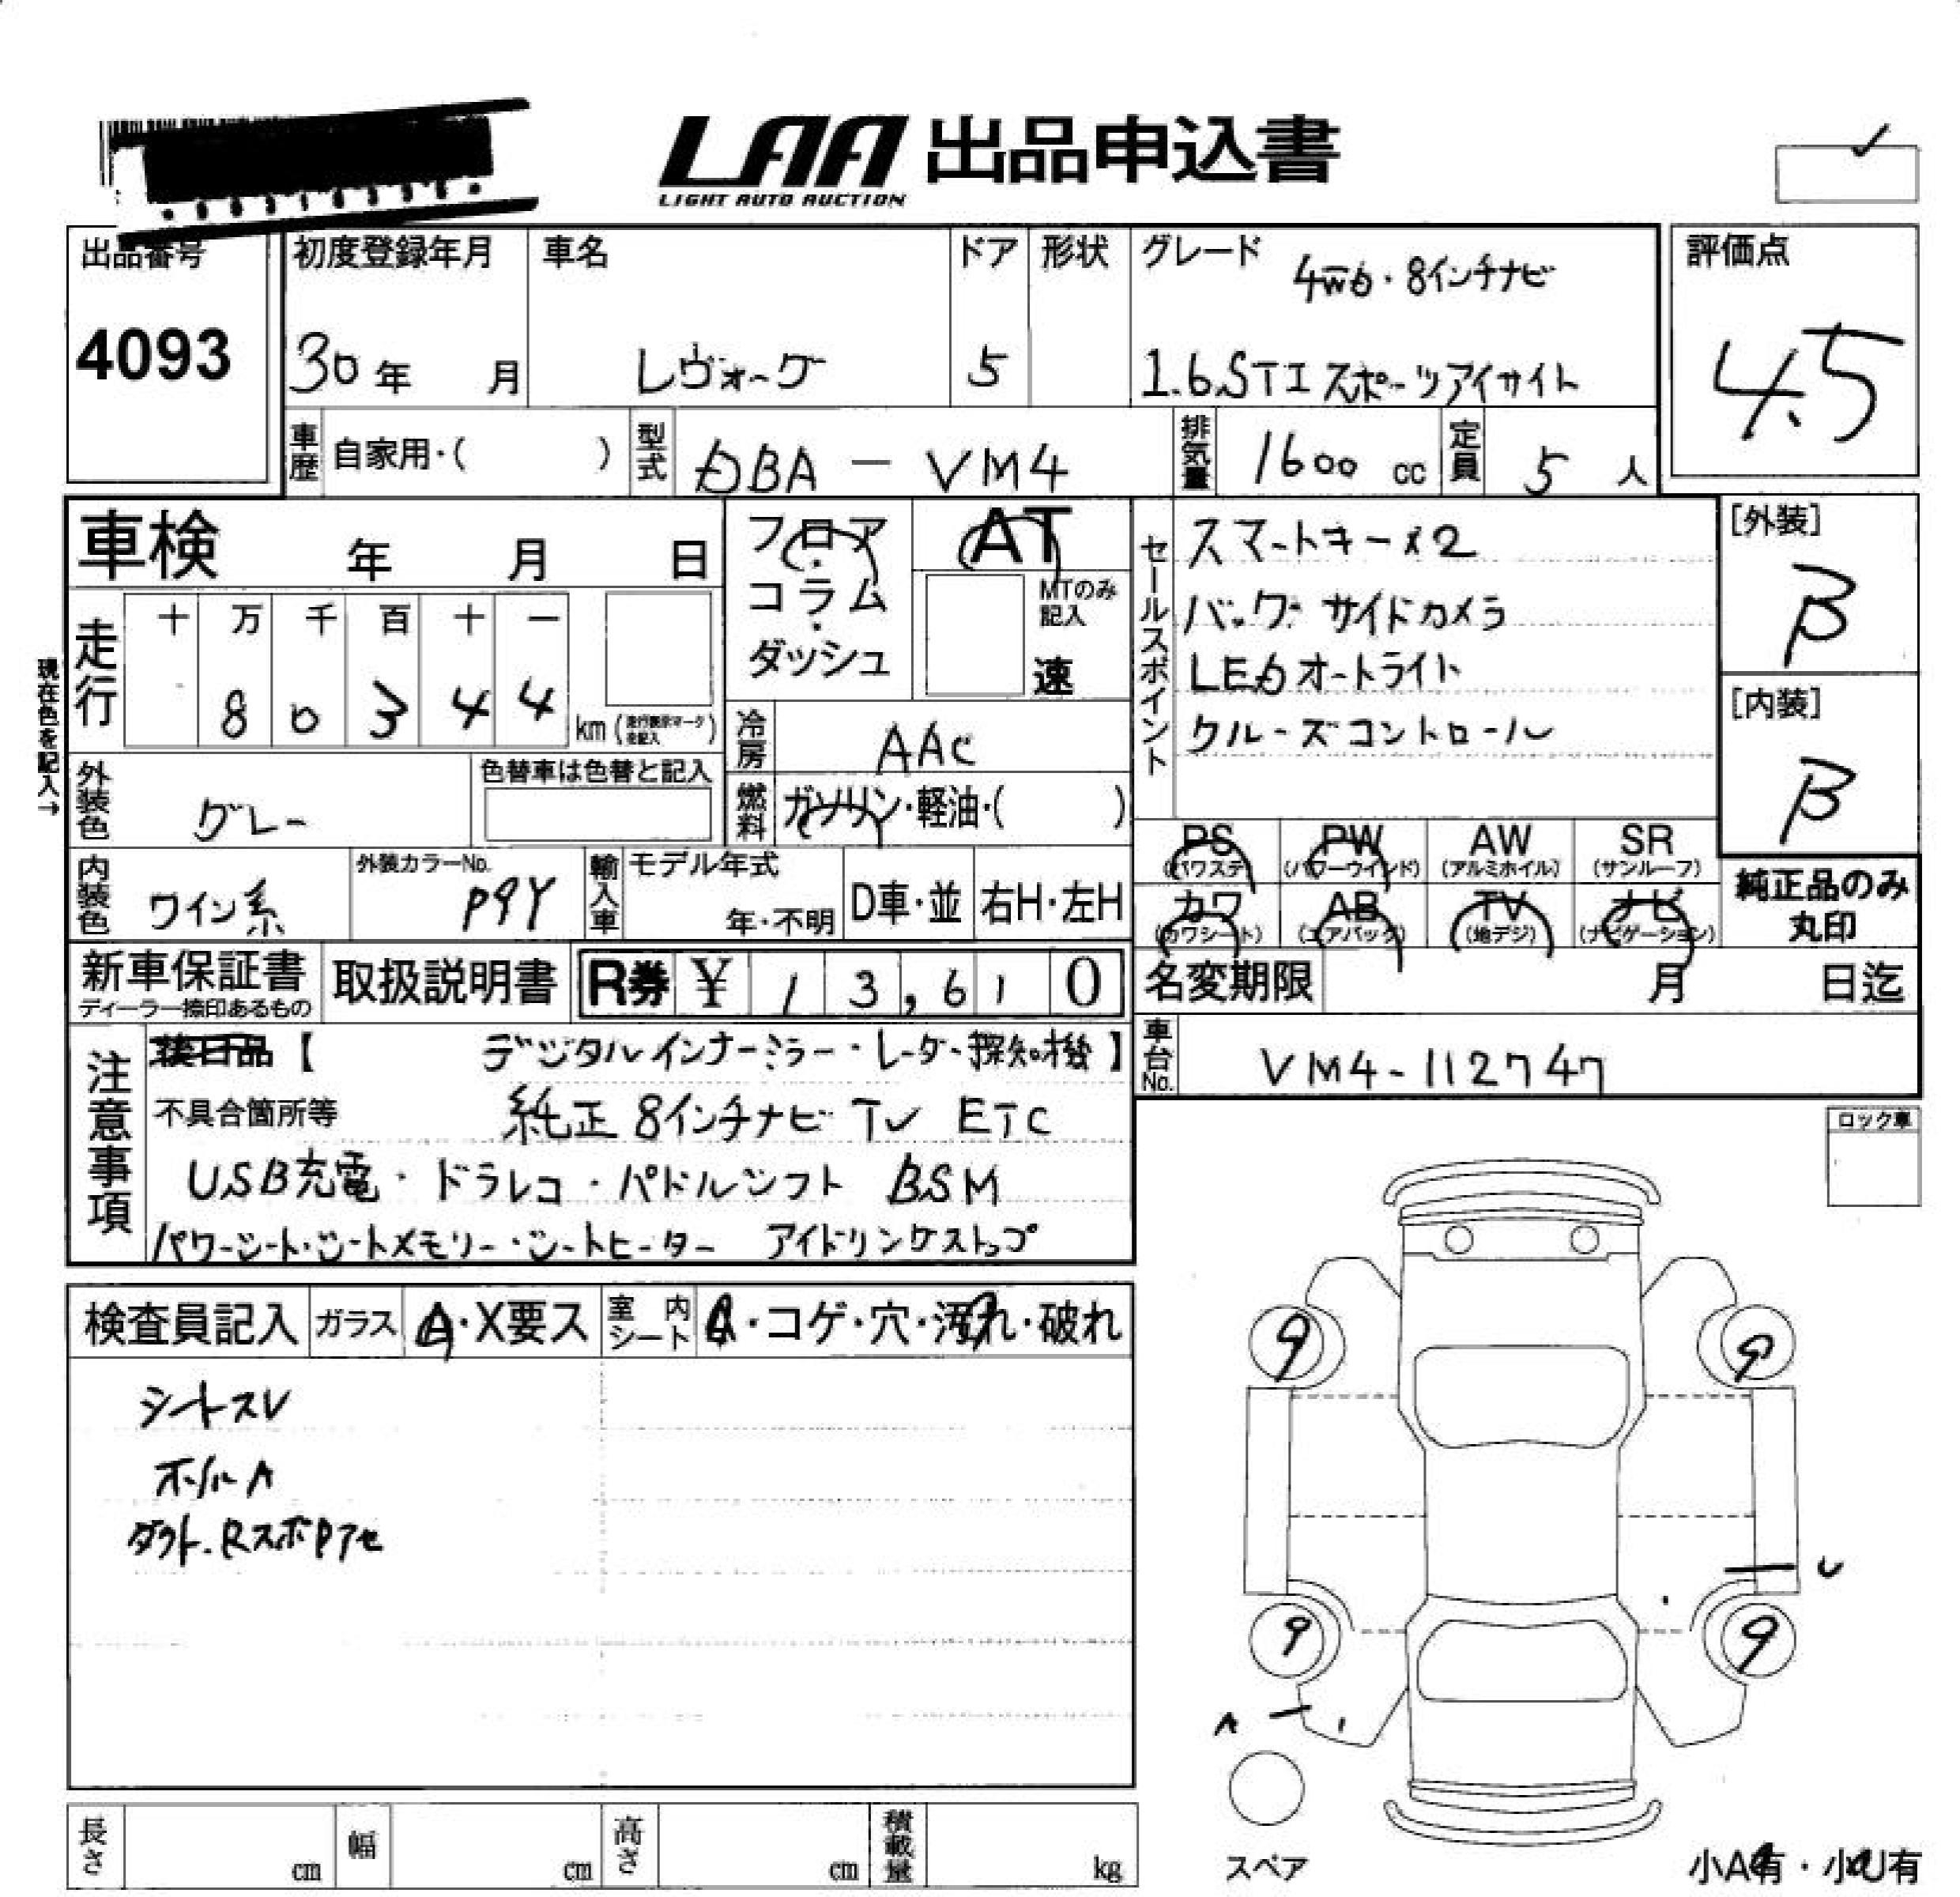 LAA 出品申込書
LIGHT AUTO AUCTION
出品番号
4093
初度登録年月
30年 月
車名
レヴォーグ
ドア
5
形状
グレード 4WD・8インチナビ
1.6STIスポーツアイサイト
評価点
4.5
車歴 自家用・( )
型式 DBA - VM4
排気量 1600 cc
定員 5 人
車検 年 月 日
フロア・コラム・ダッシュ
AT
MTのみ記入
速
セールスポイント
スマートキー×2
バック・サイドカメラ
LEDオートライト
クルーズコントロール
[外装]
B
[内装]
B
現在色を記入→
走行 十 万 千 百 十 一
8 0 3 4 4 km (走行表示マーク を記入)
冷房 AAC
燃料 ガソリン・軽油・( )
外装色 グレー
色替車は色替と記入
内装色 ワイン系
外装カラーNo. P9Y
輸入車 モデル年式
年・不明
D車・並
右H・左H
PS (パワステ)
PW (パワーウインド)
AW (アルミホイル)
SR (サンルーフ)
カワ (カワシート)
AB (エアバック)
TV (地デジ)
ナビ (ナビゲーション)
純正品のみ
丸印
新車保証書
ディーラー捺印あるもの
取扱説明書
R券 ¥ 13,610
名変期限 月 日迄
車台No. VM4-112747
注意事項
【 デジタルインナーミラー・レーダー探知機】
不具合箇所等 純正8インチナビ TV ETC
USB充電・ドラレコ・パドルシフト BSM
パワーシート・シートメモリー・シートヒーター アイドリングストップ
ロック車
検査員記入
ガラス A・X要ス
室内シート ・コゲ・穴・汚れ・破れ
シートスレ
ホイルA
ダクト.RスポPアセ
9
9
U
9
9
A
スペア
小A有・小U有
長さ cm
幅 cm
高さ cm
積載量 kg